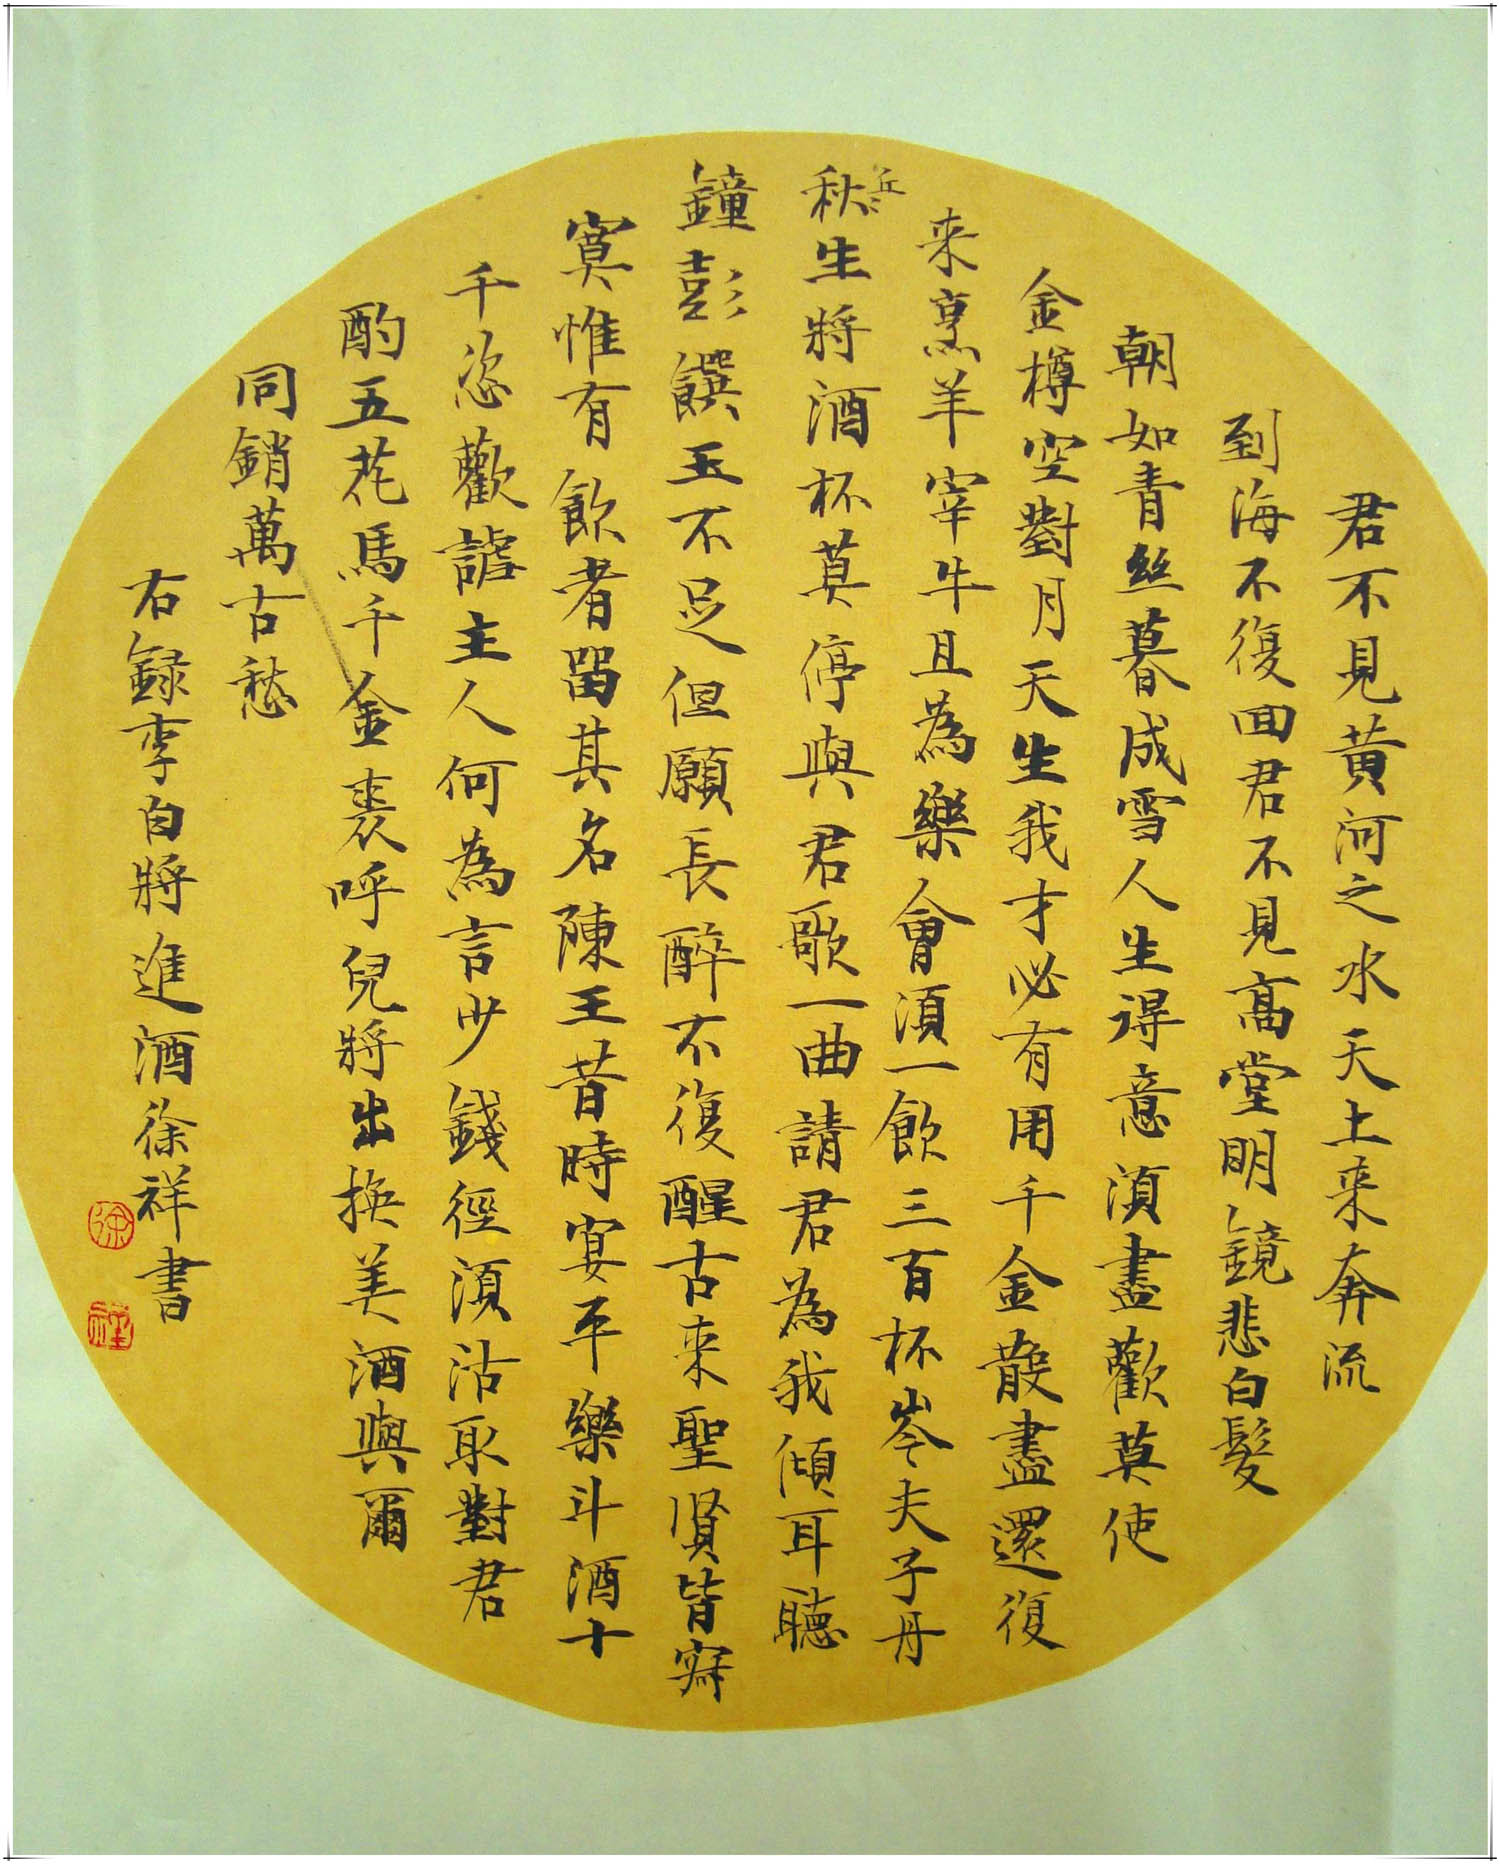 君不見黄河之水天上来奔流
到海不復回君不見高堂明鏡悲白髮
朝如青絲暮成雪人生得意須盡歡莫使
金樽空對月天生我才必有用千金散盡還復
来烹羊宰牛且為樂會須一飲三百杯岑夫子丹
丘
秋生將酒杯莫停與君歌一曲請君為我傾耳聽
鐘彭饌玉不足但願長醉不復醒古来聖賢皆寂
寞惟有飲者留其名陳王昔時宴平樂斗酒十
千恣歡謔主人何為言少錢徑須沽取對君
酌五花馬千金裘呼兒將出換美酒與爾
同銷萬古愁
右録李白將進酒徐祥書
徐
祥